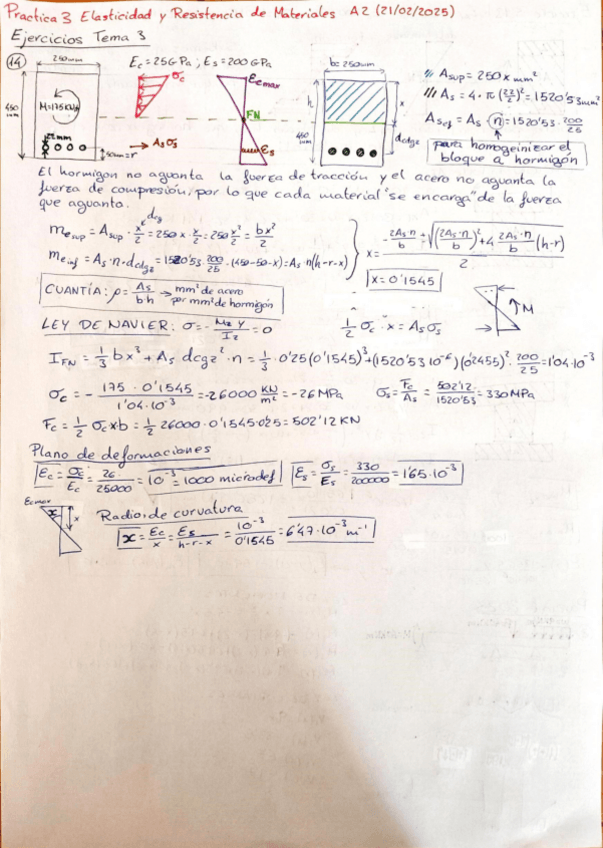 Practica 3 Elasticidad y Resistencia de Materiales A2 (21/02/2025)
Ejercicios Tema 3
14
250mm
Ec = 25GPa ; Es = 200GPa
bc 250mm
/// Asup = 250x mm²
/// As = 4·π(22/2)² = 1520'53mm²
Asef = As · n = 1520'53 · 200/25
para homogeneizar el
bloque a hormigón
450 mm
M=175KNm
22mm
50mm=r
σc
Asσs
εc max
FN
εs
h
x
450 mm
dcdg2
El hormigon no aguanta la fuerza de tracción y el acero no aguanta la
fuerza de compresión, por lo que cada material "se encarga" de la fuerza
que aguanta.
dcg
mesup = Asup · x/2 = 250x · x/2 = 250 x²/2 = bx²/2
meinf = As·n·dcdg2 = 1520'53 200/25 · (450-50-x) = As·n(h-r-x)
x = (-2As n/b + √((2As·n/b)² + 4 2As·n/b (h-r)))/2
x = 0'1545
CUANTÍA: ρ = As/bh → mm² de acero por mm² de hormigón
M
LEY DE NAVIER: σ = - Mz y/Iz = 0
1/2 σc · x = Asσs
IFN = 1/3 bx³ + As dcg2² · n = 1/3 · 0'25(0'1545)³ + (1520'53·10⁻⁶)(0'2455)² · 200/25 = 1'04·10⁻³
σc = - 175 · 0'1545/1'04·10⁻³ = -26000 KN/m² = -26 MPa
σs = Fc/As = 502'12/1520'53 = 330 MPa
Fc = 1/2 σc xb = 1/2 26000·0'1545·0'25 = 502'12 KN
Plano de deformaciones
εc = σc/Ec = 26/25000 = 10⁻³ = 1000 microdef
εs = σs/Es = 330/200000 = 1'65·10⁻³
εc max
x
Radio de curvatura
x = εc/x = εs/h-r-x = 10⁻³/0'1545 = 6'47·10⁻³ m⁻¹